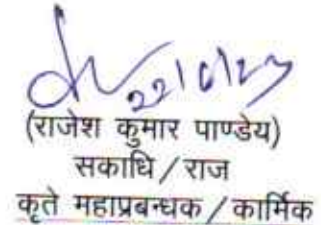 22/6/23
(राजेश कुमार पाण्डेय)
सकाधि / राज
कृते महाप्रबन्धक / कार्मिक